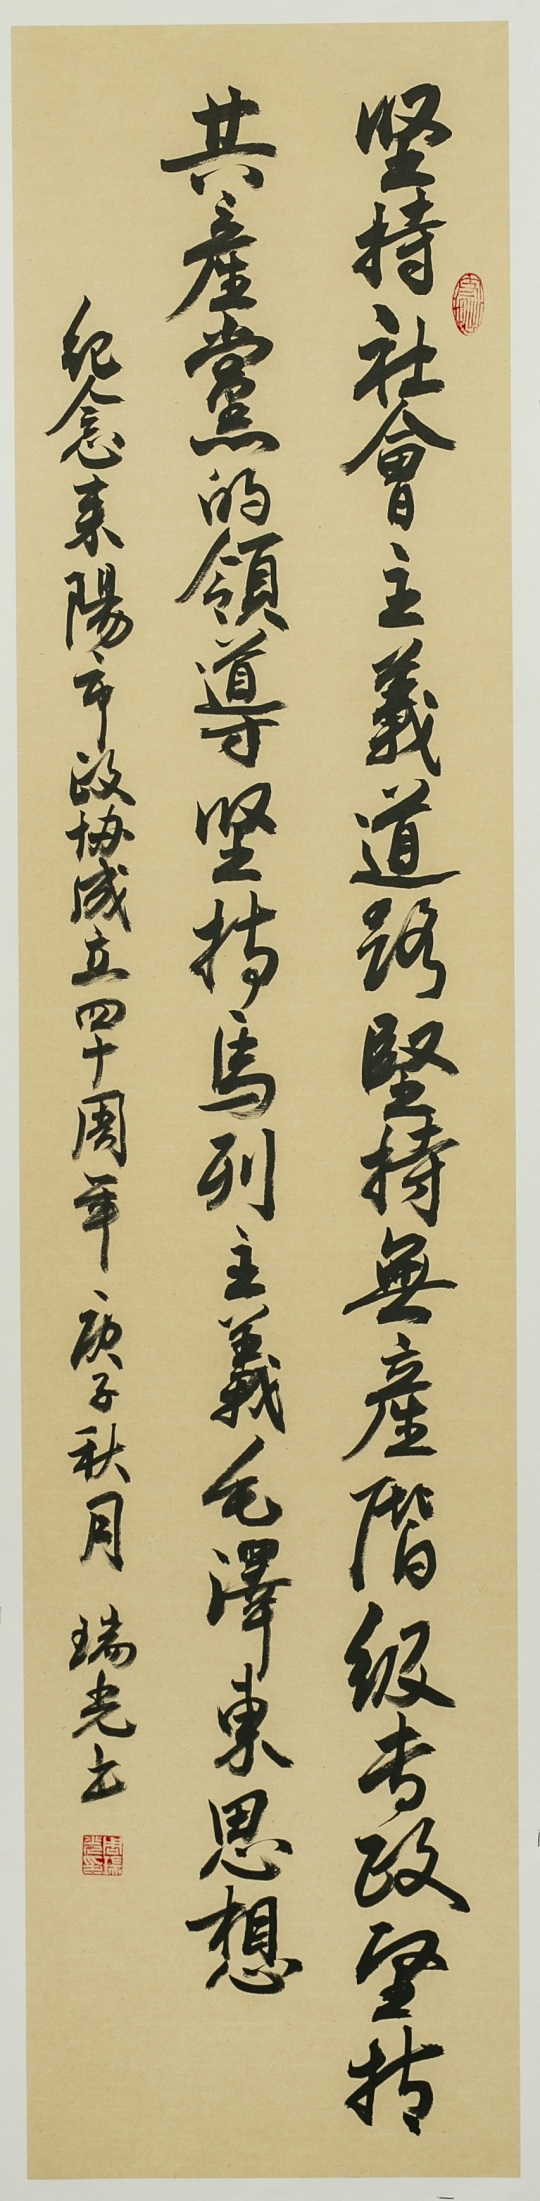 坚持社會主義道路堅持無產階级专政坚持
共產黨的領導坚持馬列主義毛澤東思想
纪念耒陽市政协成立四十周年 庚子秋月 瑞光书